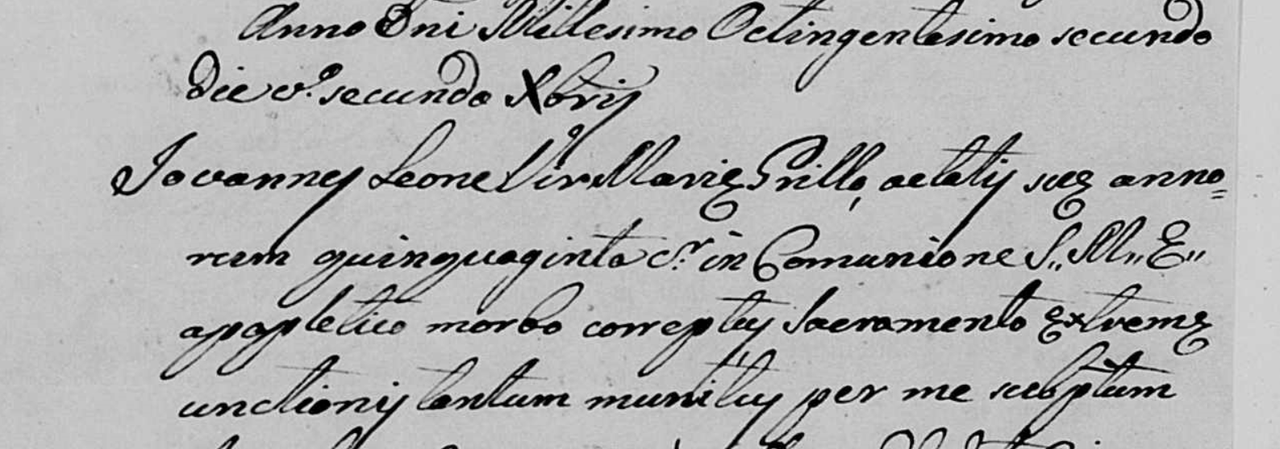 Anno Dni Millesimo Octingentesimo secundo
die v.o secundo Xbris
Joannes Leone Vir Marię Prillo, aetatis suę anno=
rum quinquaginta c.r in Comunione S,, M,, E,,
apopletico morbo correptus Sacramento Extremę
unctionis tantum munitus per me subptum